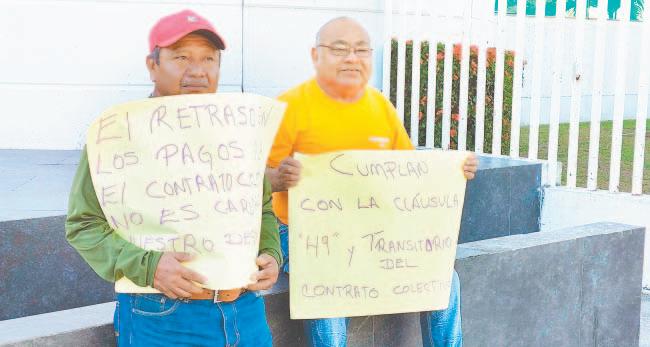 El RETRASO
LOS PAGOS
El CONTRATO
NO ES
NUESTRO
CUMPLAN
CON LA CLÁUSULA
"49" y TRANSITORIO
DEL
CONTRATO COLECTIVO